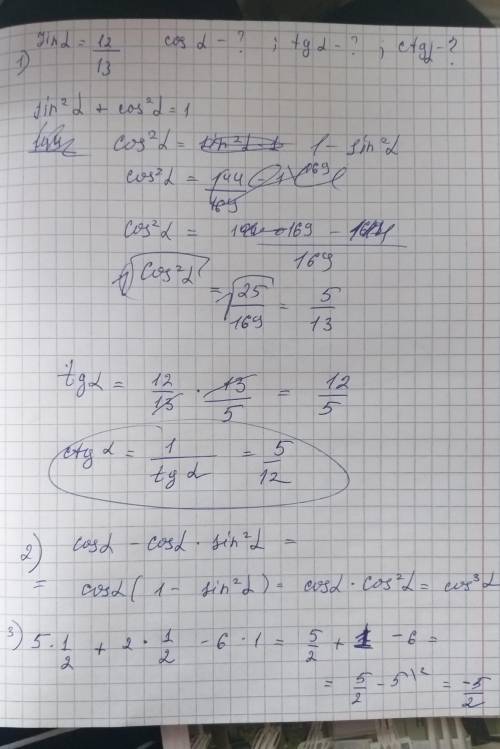 1) sinα = 12/13 cos α - ? ; tgα - ? ; ctgα - ?
sin²α + cos²α = 1
cos²α = 1 - sin²α
cos²α = 144/169
cos²α = 169 - 144 / 169
√cos²α = √25/169 = 5/13
tgα = 12/13 · 13/5 = 12/5
ctgα = 1/tgα = 5/12
2) cosα - cosα · sin²α =
= cosα(1 - sin²α) = cosα · cos²α = cos³α
3) 5·1/2 + 2·1/2 - 6·1 = 5/2 + 1 - 6 =
= 5/2 - 5\² = -5/2